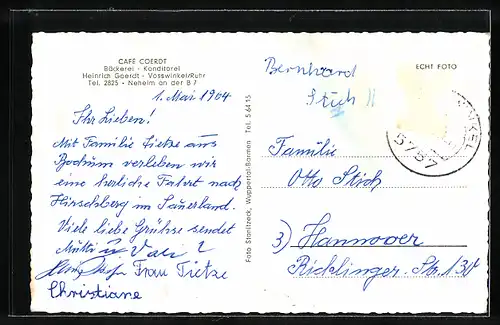 CAFÉ COERDT
Bäckerei - Konditorei
Heinrich Coerdt - Vosswinkel/Ruhr
Tel. 2825 - Neheim an der B 7
1. Mai 1964
Ihr Lieben!
Mit Familie Tietze aus
Bochum verleben wir
eine herliche Fahrt nach
Hirschberg im Sauerland.
Viele liebe Grühse sendet
Mutti u. Vati
Frau Tietze
Christiane
Foto Stanitzeck, Wuppertal-Barmen Tel. 5 64 15
Bernhard
Stich
ECHT FOTO
5757
Familie
Otto Stich
3) Hannover
Ricklinger-Str. 130